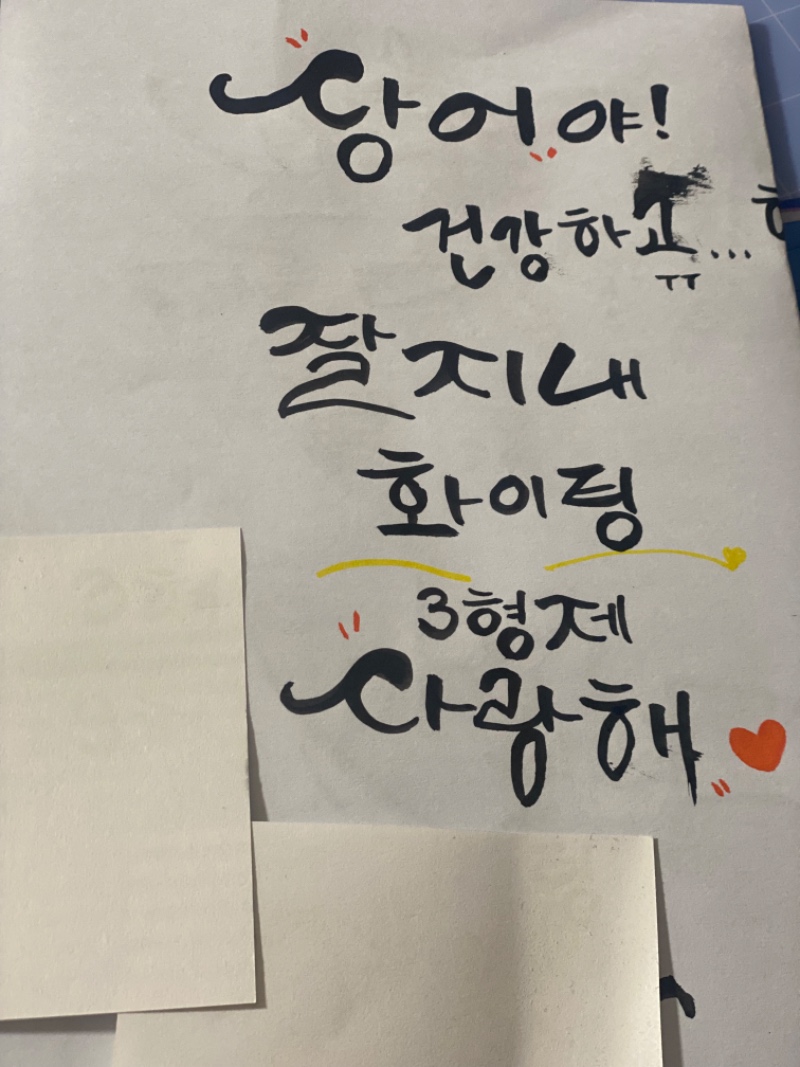 상어야!
건강하고...
ㅜㅜ
잘지내
화이팅
3형제
사랑해